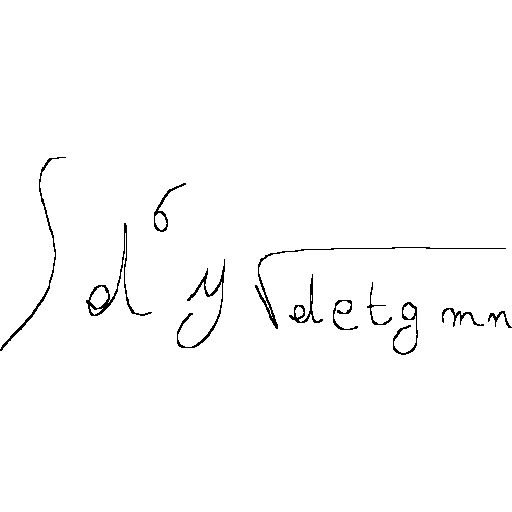 ∫ d^6 y √(det g mn)